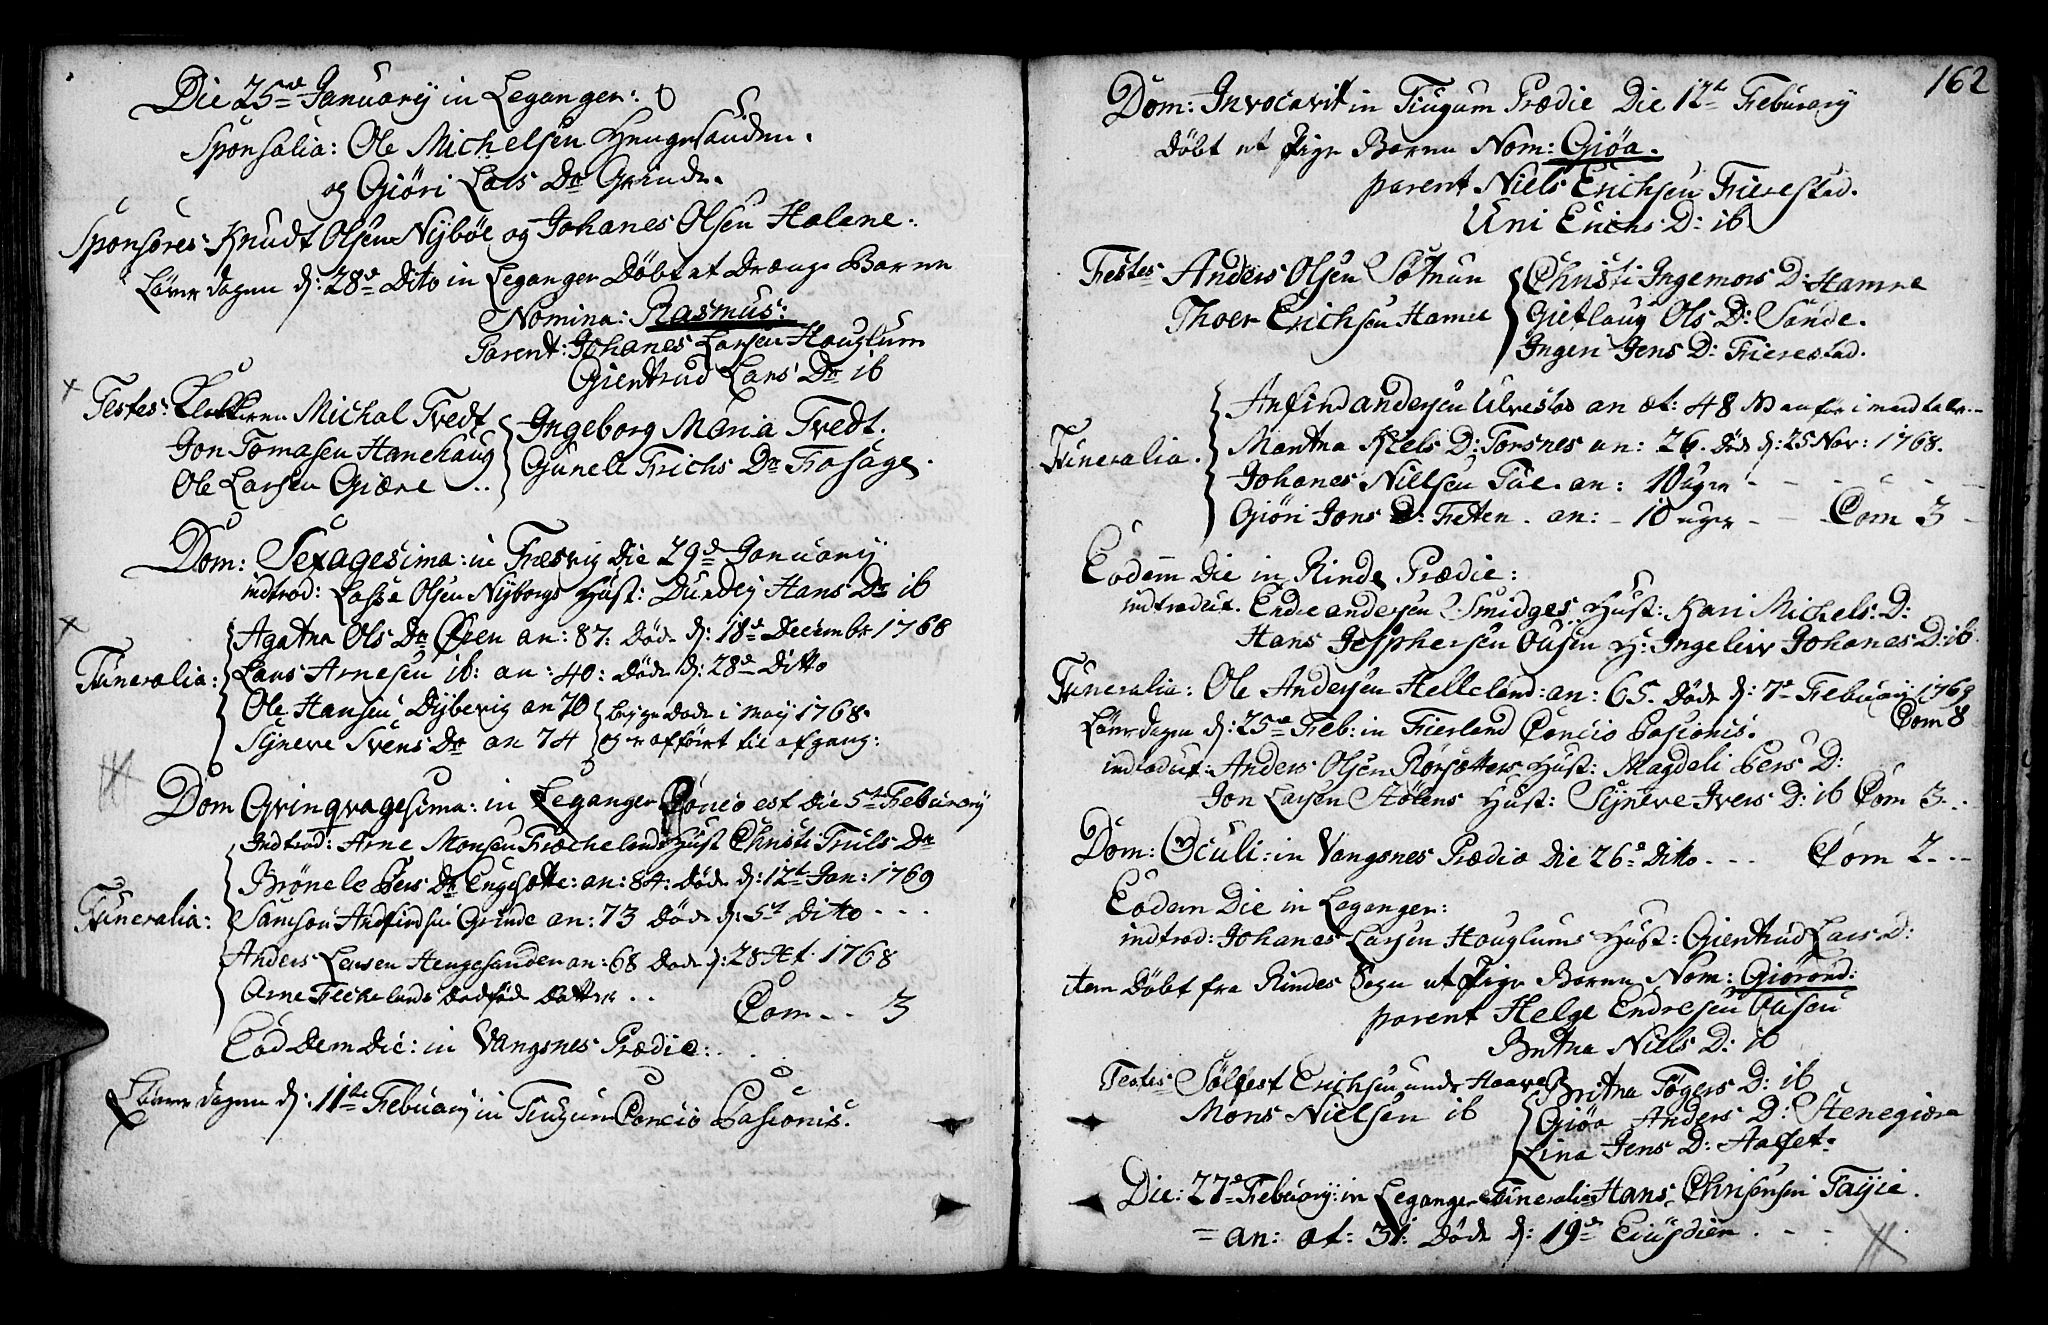 Die 25de January in Leganger:
Sponsalia: Ole Michelsen Hengesanden.
og Giöri Lars Dr Grinde.
Sponsores: Knudt Olsen Nÿböe og Johanes Olsen Halene:
Löverdagen d: 28de Dito in Leganger Döbt et Drenge Barn
Nomina: Rasmus:
Parent: Johanes Larsen Houglum
Giertrud Lars Dr ib
Testes: Klokkeren Michal Tvedt
Jon Tomasen Hanehaug
Ole Larsen Giære
Ingeborg Maria Tvedt.
Gunell Frichs Dr Fosage.
Dom: Sexagesima: in Fræsvig Die 29de January
indtrod: Lasse Olsen Nÿborgs Hust: Durdeÿ Hans Dr ib
Funeralia:
Agatha Ols Dr Ören an: 87: Döde d: 18de Decembr 1768
Lars Arnesen ib: an: 40: Döde d: 28de Ditto
Ole Hansen Dÿbevig an 70
Sÿneve Svens Dr an 74
begge Döde i Maÿ 1768.
og er afført til afgang:
Dom Qvinqvagesima: in Leganger Concio est Die 5te Februarÿ
Indtrod: Arne Monsen Fræchelands Hust Christi Truls Dr
Funeralia:
Brönele Pers Dr Engesætte: an: 84: Döde d: 12te Jan: 1769
Samson Andfindsen Grinde an: 73 Döde d: 5te Ditto
Anders Larsen Hengesanden an: 68 Döde d: 28 1768
Arne Fechelands Dødføde Datter
Com - - 3
Eod Dem Die: in Vangsnes Prædie:
Löverdagen d: 11te Februarÿ in Tiugum Concio Pasionis.
162
Dom: Invocavit in Tiugum Prædie Die 12te Februarÿ
Döbt et Pige Barn Nom: Giöa.
parent Niels Erichsen Fierestad.
Uni Erichs D: ib
Testes Anders Olsen Söttun
Thoer Erichsen Hamre
Christi Ingemors D: Hamre
Gietlaug Ols D: Sande.
Ingeri Jens D: Fierestad.
Funeralia.
Anfind andersen Ulvestad an æt: 48 NB anför i mandtalr.
Martha Niels D: Torsnes an: 26. döde d: 25 Nov: 1768.
Johanes Nielsen Tue. an: 10 uger
Giöri Jons D: Fetten. an: - 10 uger - Com 3 -
Eodem Die in Rinde Prædie:
indtrodut. Endre andersen Smidges Hust: Kari Michels D:
Hans Jesphersen Ousen H: Ingeleiv Johanes D: ib.
Funeralia: Ole Andersen Helleland: an: 65. Döde d: 7de Februarÿ 1769
Com 8
Löverdagen d: 25de Feb: in Fierland Concio Pasionis.
indtrodut: Anders Olsen Rörsætters Hust: Magdeli Pers D:
Jon Larsen Stölens Hust: Sÿneve Ivers D: ib Com 3..
Dom: Oculi: in Vangsnes Prædie Die 26de Ditto - - - Com 2 - - -
Eodem Die in Leganger:
indtrod: Johanes Larsen Houglums Hust: Giertrud Lars D:
item Döbt fra Rindes Sogn et Pige Barn Nom: Giörond:
parent Helge Endresen Ousen
Britha Niels D: ib
Testes Sölfest Erichsen unde Haare
Mons Nielsen ib
Britha Togers D: ib
Giöa Anders D: Stenegiære
Lina Jens D: Aafet.
Die: 27de Februarÿ: in Leganger Funeralia Hans Chrisensen Tajie.
= an: æt: 31: Döde d: 19de Eiusdem